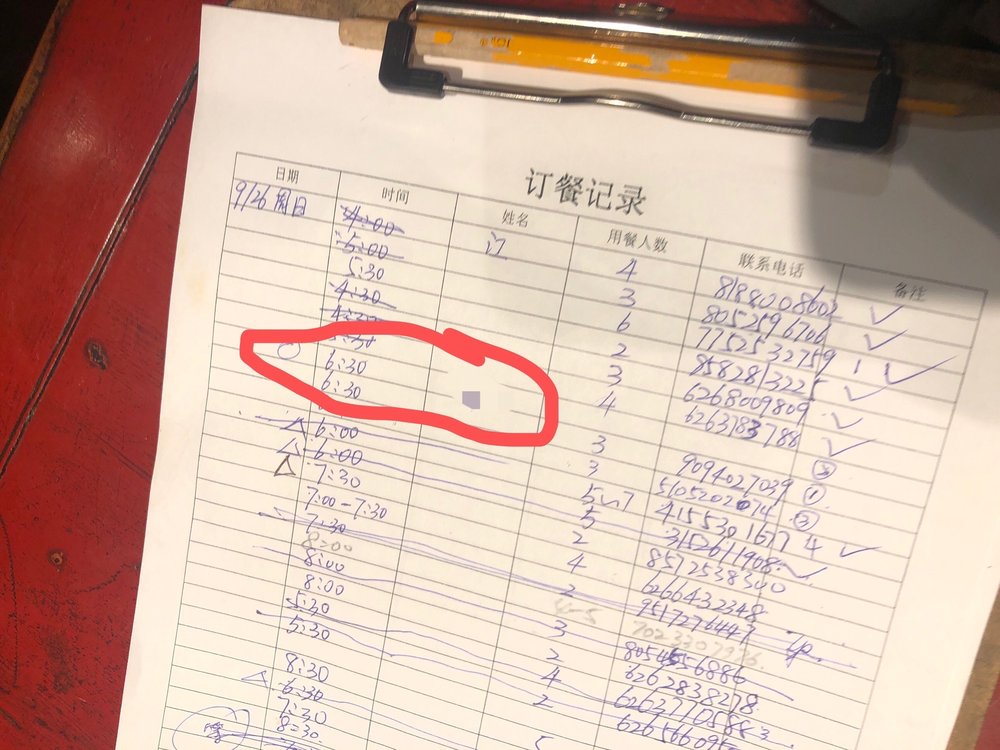 订餐记录
日期 时间 姓名 用餐人数 联系电话 备注
9/26 周日 4:00 4 8188008602 ✓
5:00 3 8052596706 ✓
5:30 6 7752532759 1 ✓
4:30 2 8582813225 ✓
3 6268009809 ✓
5:30 4 6263783788 ✓
6:30 3 9094027039 ③
6:30 3 5105202074 ①
6:00 5~7 4155301617 ③
6:00 5 3152611908 4 ✓
7:30 2 8572538300
7:00-7:30 4 6266432348
7:30 2 9517276447
8:00 4-5 7023307976
8:00 3
8:00 2 6262838278
5:30 4 6263770588 3
5:30 2
8:30
6:30
7:30
8:30